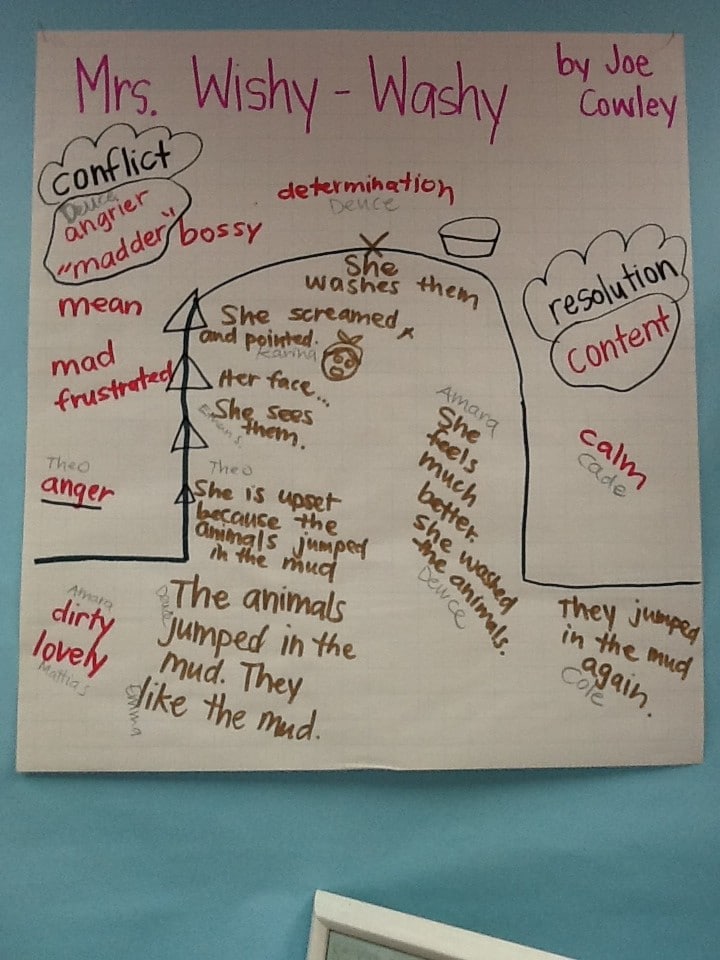 Mrs. Wishy-Washy
by Joe
Cowley
conflict
Deuce
angrier
"madder"
bossy
determination
Deuce
mean
mad
frustrated
Theo
anger
Amara
dirty
lovely
Mattias
She
washes them
She screamed
and pointed.
Karina
Her face...
She sees
them.
Theo
She is upset
because the
animals jumped
in the mud
The animals
jumped in the
mud. They
like the mud.
Emma
Amara
She
feels
much
better.
she washed
the animals.
Deuce
resolution
content
calm
Cade
They jumped
in the mud
again.
Cole